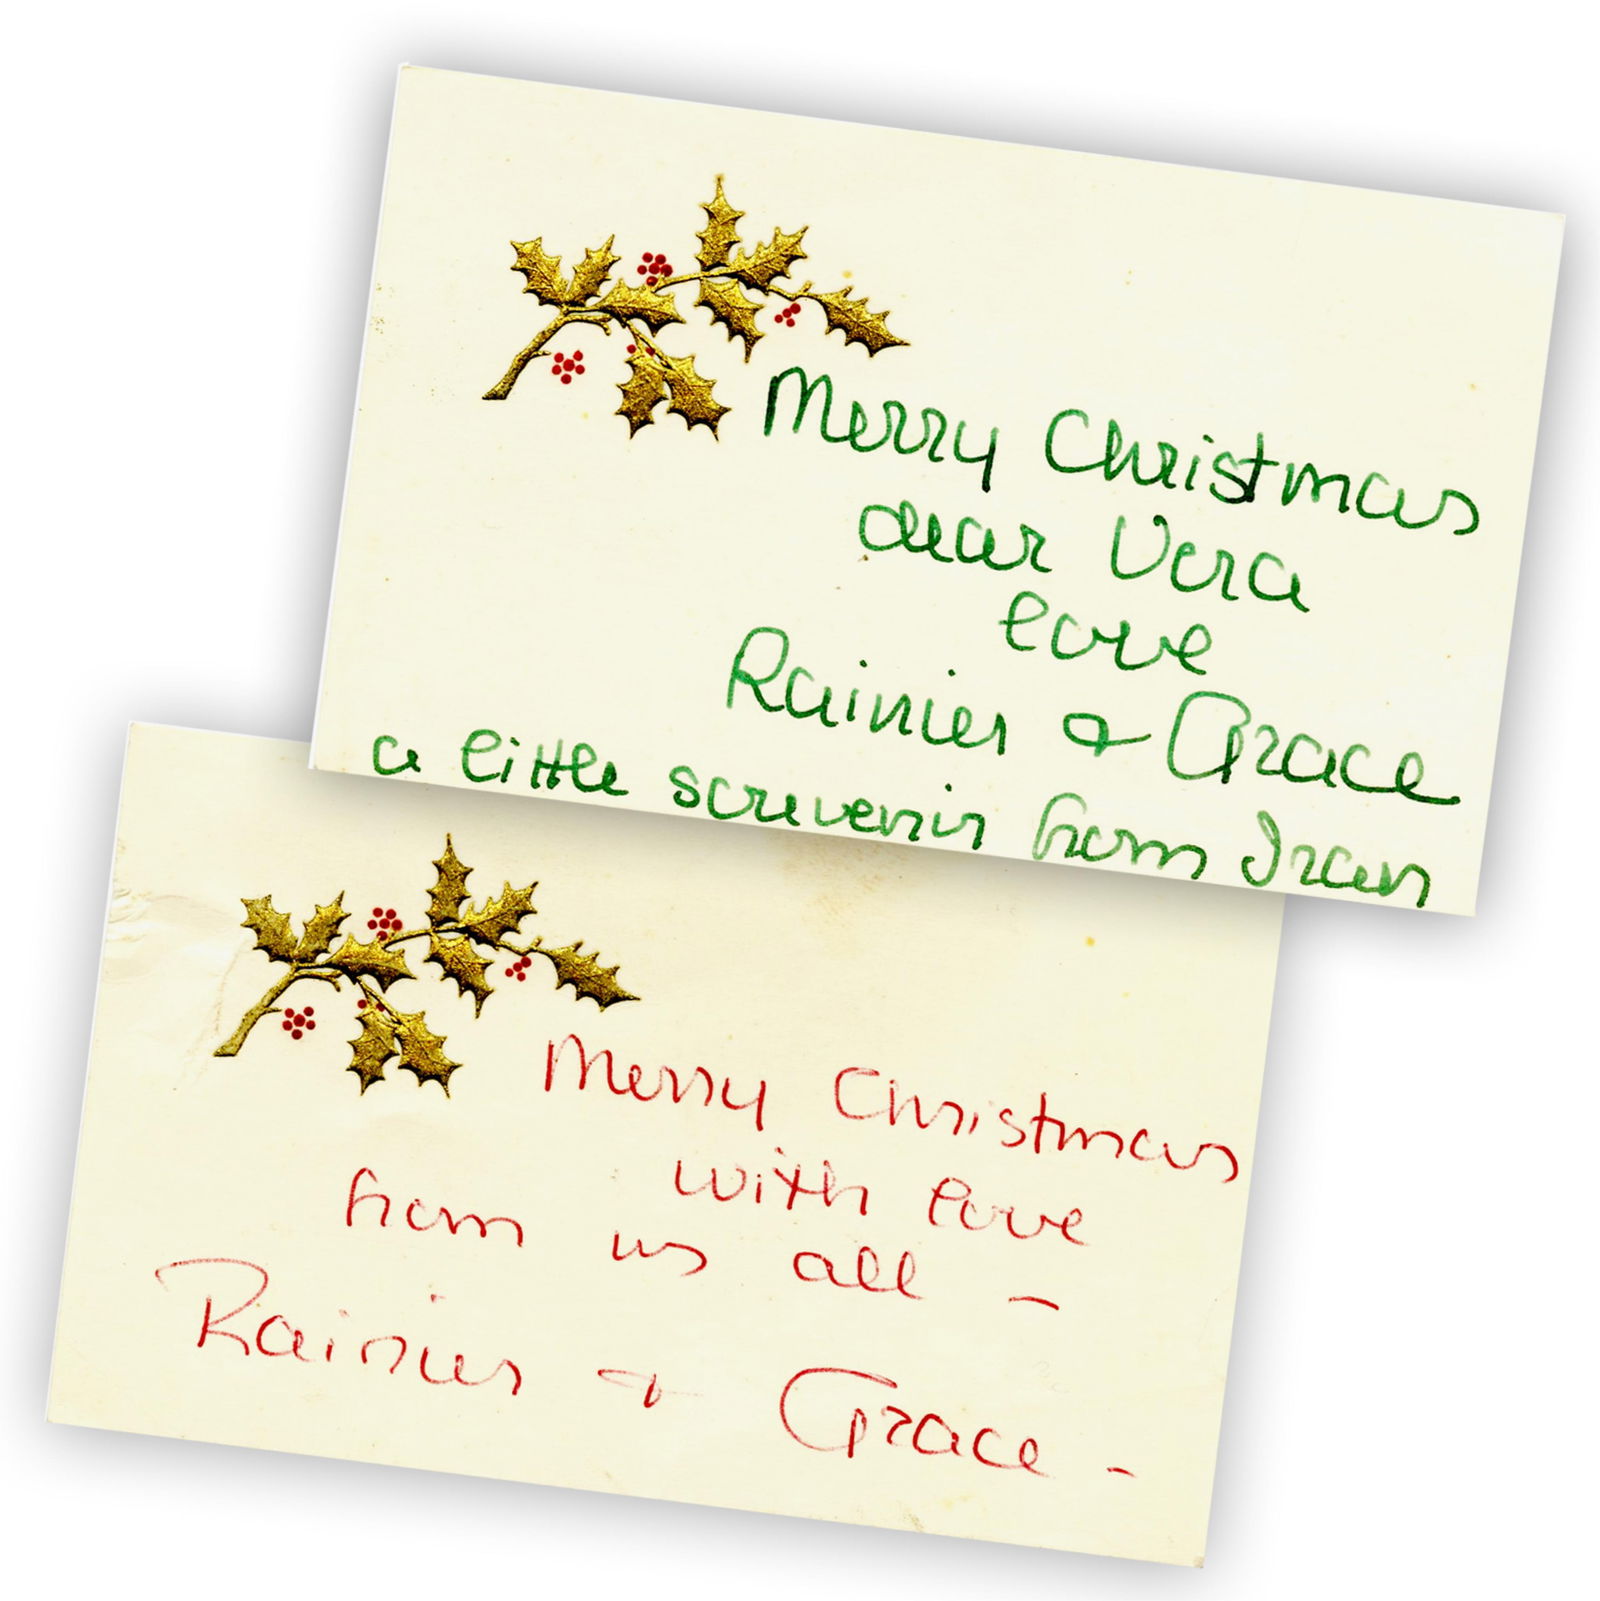 Merry Christmas
dear Vera
love
Rainier & Grace
a little souvenir from Iran
Merry Christmas
with love
from us all –
Rainier & Grace –